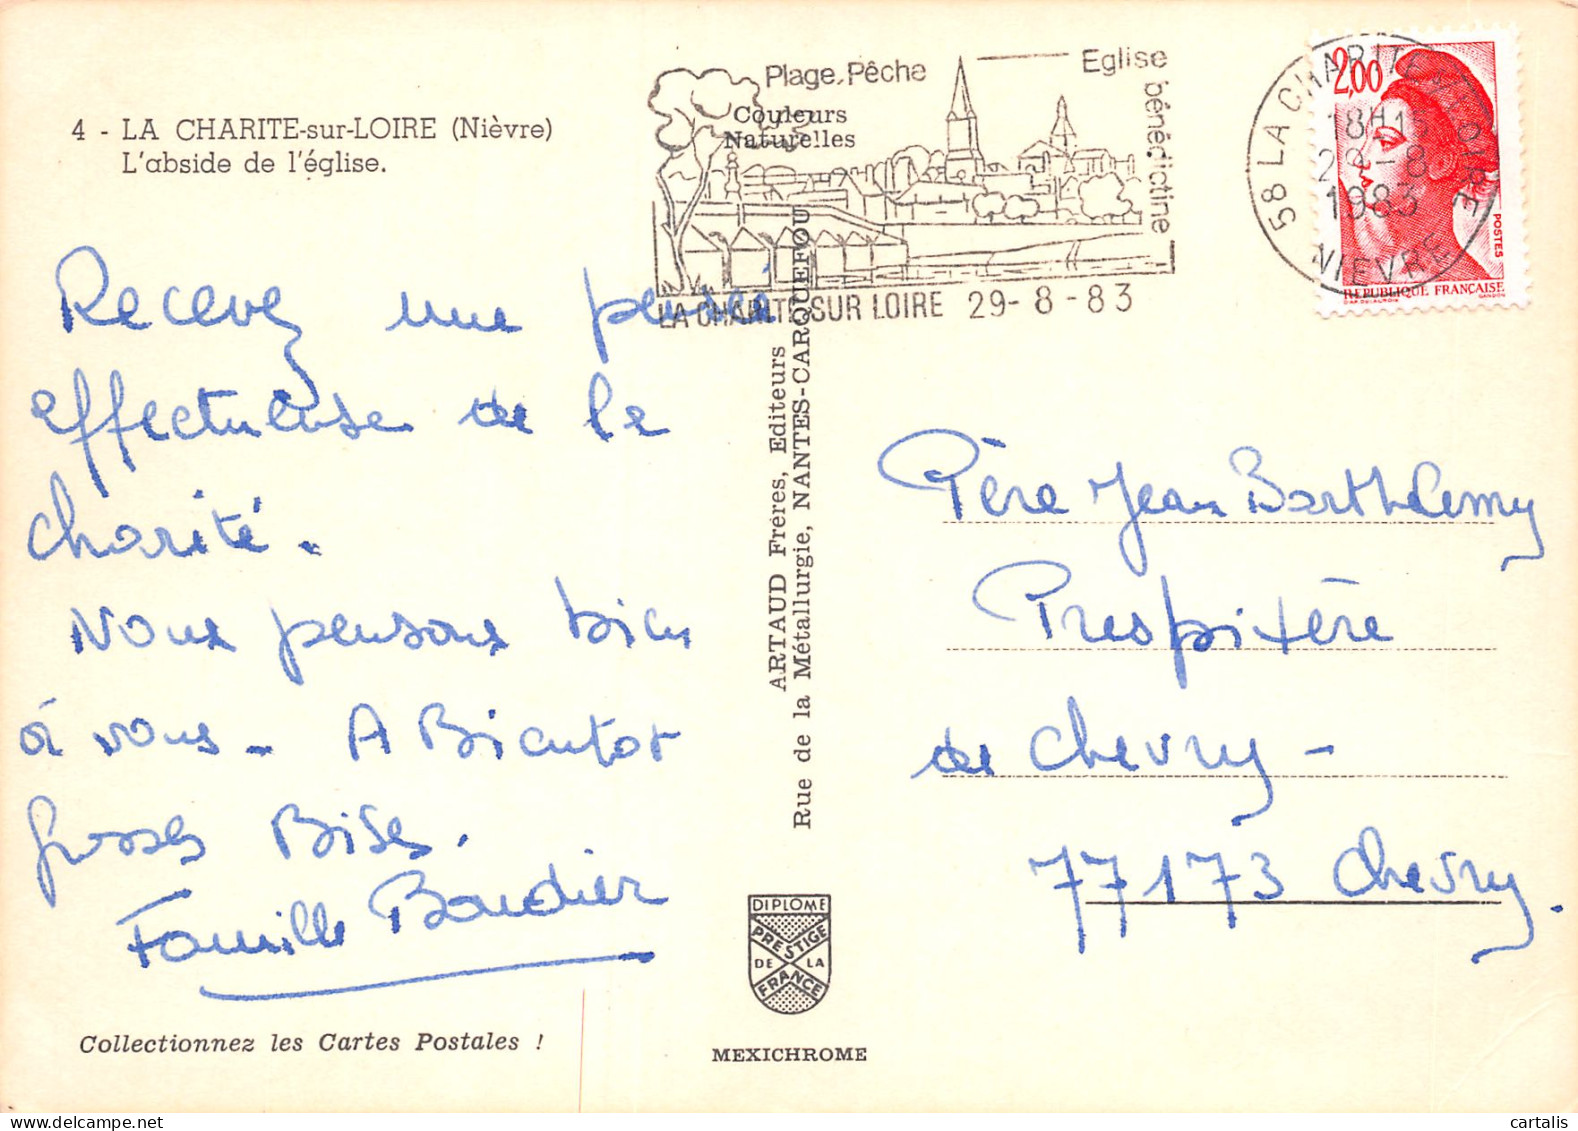 4 - LA CHARITE-sur-LOIRE (Nièvre)
L'abside de l'église.
Plage, Pêche
Eglise bénédictine
Couleurs
Naturelles
LA CHARITE SUR LOIRE 29-8-83
58 LA CHARITE SUR LOIRE
18H15
29-8
1983
NIEVRE
2,00
POSTES
REPUBLIQUE FRANÇAISE
GANDON
Recevez une pensée
effectueuse de la
charité.
Nous pensons bien
à vous - A Bientot
grosses Bises.
Famille Baudier
ARTAUD Frères, Editeurs
Rue de la Métallurgie, NANTES-CARQUEFOU
Père Jean Barthlemy
Prespitère
de Chevry -
77173 Chevry.
DIPLOME
PRESTIGE
DE LA
FRANCE
Collectionnez les Cartes Postales !
MEXICHROME
cartalis